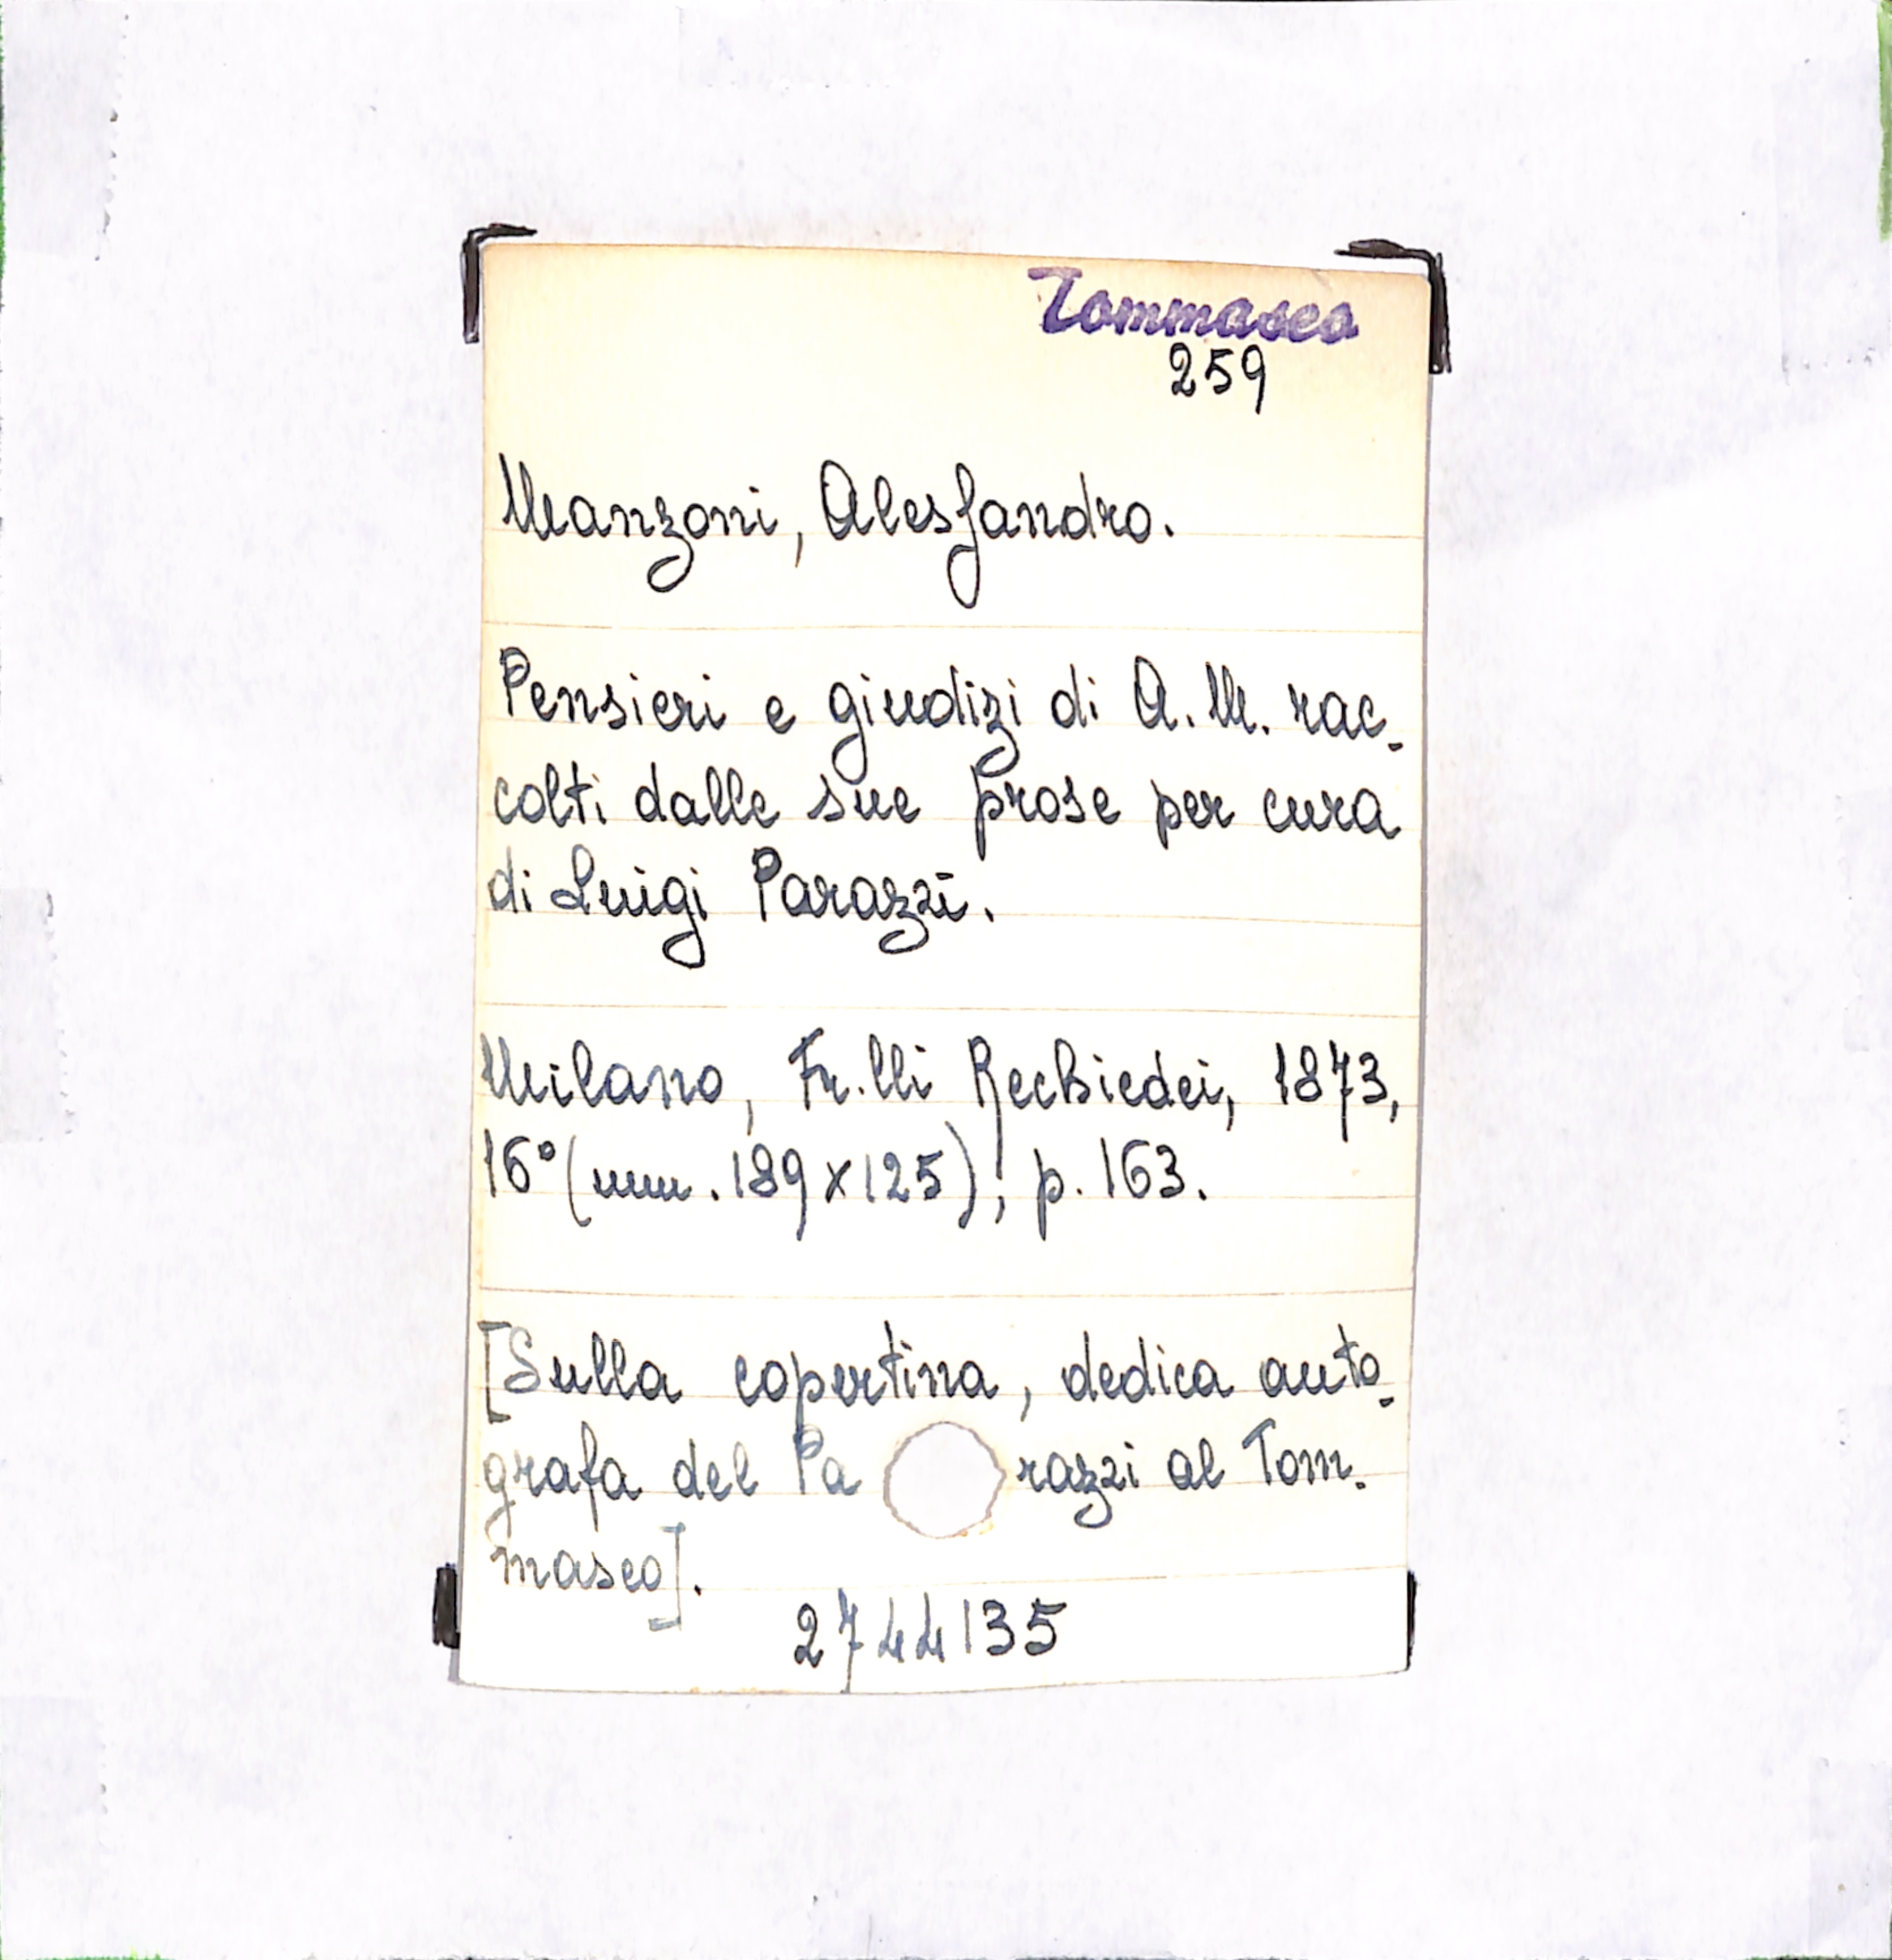 Tommaseo
259
Manzoni, Alessandro.
Pensieri e giudizi di A. M. rac-
colti dalle sue prose per cura
di Luigi Parazzi.
Milano, Fr.lli Rechiedei, 1873,
16° (mm. 189 x 125); p. 163.
[Sulla copertina, dedica auto-
grafa del Pa razzi al Tom-
maseo].
2744135